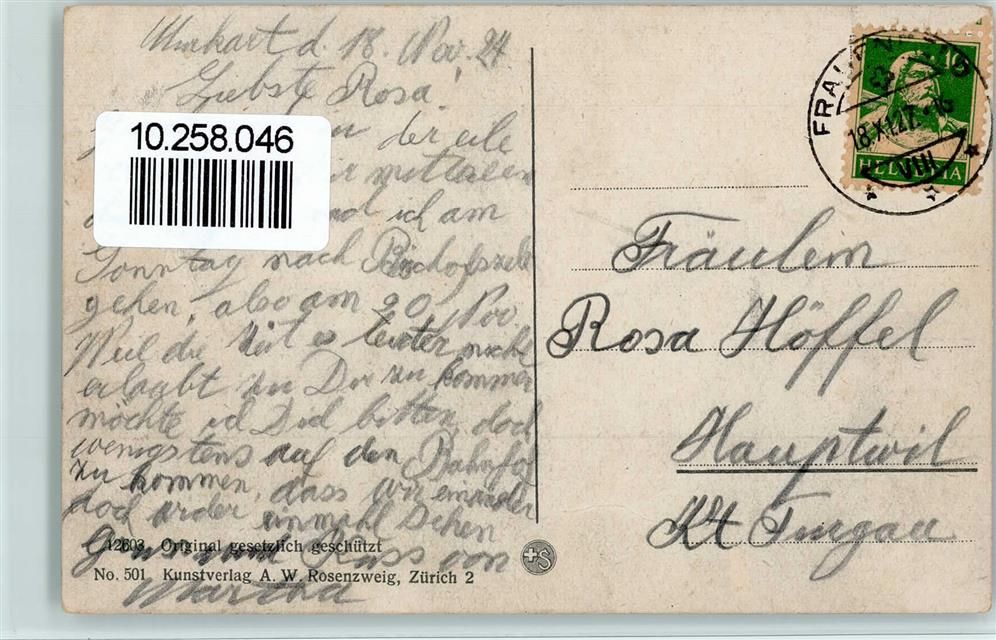 d. 18. Nov. 24
Liebste Rosa.
10.258.046
der eile
mittallen
ich am
Sonntag nach Bischofszell
gehen, also am 20 Nov.
Weil die Zeit es leider nicht
erlaubt zu Dir zu kommen
möchte ich Dich bitten doch
wenigstens auf den Bahnhof
zu kommen, dass wir einander
doch wider einmahl sehen
Gruss und Kuss von
Martha
12603 Original gesetzlich geschützt
No. 501 Kunstverlag A. W. Rosenzweig, Zürich 2
+S
10
HELVETIA
FRAUENFELD
18.XI.27.
VIII
Fräulein
Rosa Höffel
Hauptwil
Kt Turgau